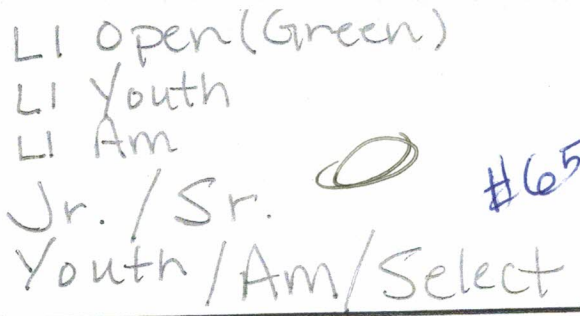 L1 Open (Green)
L1 Youth
L1 Am
Jr. / Sr.
#65
Youth / Am / Select